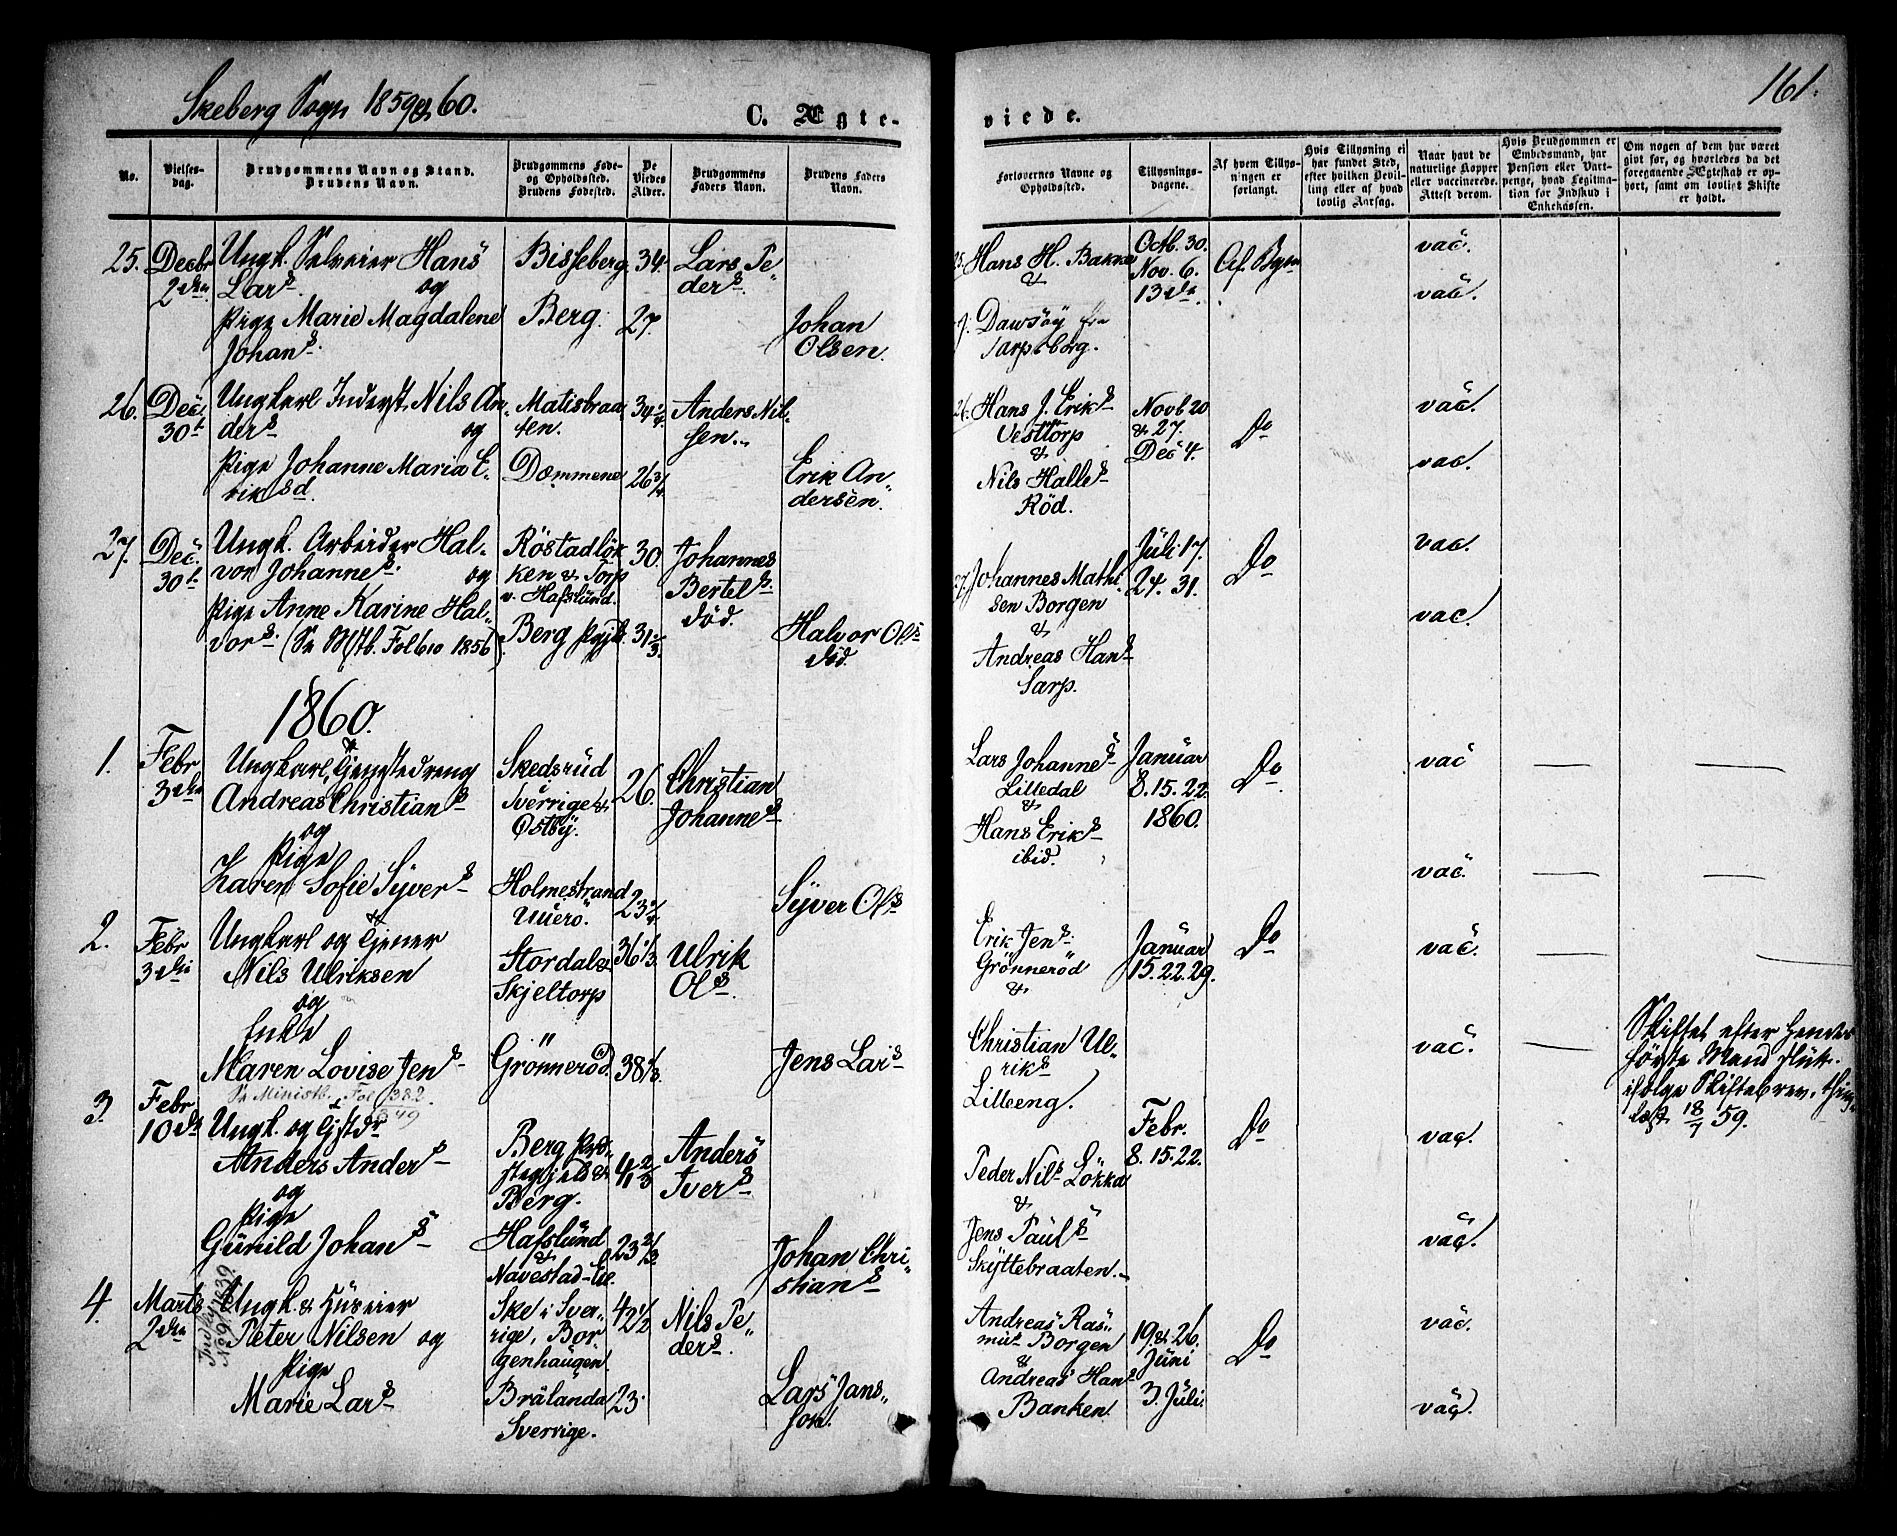 Skeberg Sogn 1859 & 60.
C. Ægte-
viede.
161.
No.
Vielses-
dag.
Brudgommens Navn og Stand.
Brudens Navn.
Brudgommens Føde-
og Opholdssted.
Brudens Fødested.
De
Viedes
Alder.
Brudgommens
Faders Navn.
Brudens Faders
Navn.
Forlovernes Navne og
Opholdssted.
Tillysnings-
dagene.
Af hvem Tillys-
ningen er
forlangt.
Hvis Tillysning ei
har fundet Sted,
efter hvilken Bevil-
ling eller af hvad
lovlig Aarsag.
Naar havt de
naturlige Kopper
eller vaccinerede.
Attest derom.
Hvis Brudgommen er
Embedsmand, har
Pension eller Vart-
penge, hvad Legitima-
tion for Indskud i
Enkekassen.
Om nogen af dem har været
givt før, og hvorledes da det
foregaaende Ægteskab er op-
hørt, samt om lovligt Skifte
er holdt.
25. Decbr 2den
Ungk. Selveier Hans
Lars. og
Pige Marie Magdalene
Johans.
Bisseberg
Berg.
34.
27.
Lars Pe-
ders.
Johan
Olsen.
Hans H. Bakke
&
J. Dawsøy fra
Sarpsborg.
Octb. 30.
Nov. 6.
13de
Af Bgm
vac.
vac.
26. Dec. 30t.
Ungkarl Inderst Nils An-
ders og
Pige Johanne Maria E-
riksd.
Matisbraa-
ten.
Dæmmene
34 1/4
26 3/4
Anders Nil-
sen.
Erik An-
dersen.
26. Hans J. Eriks
Vesttorp
&
Nils Halls
Röd.
Novb 20
& 27.
Dec 4.
Do
vac.
vac.
27. Dec. 30t.
Ungk. Arbeider Hal-
vor Johannes. og
Pige Anne Karine Hal-
vors. (Se Mstb. Fol 610 1856)
Röstadlök-
ken & Torp
v. Hafslund.
Berg Pgjd.
30.
31 2/3
Johannes
Bertels.
död.
Halvor Ols
död.
27. Johannes Mathi-
sen Borgen
&
Andreas Hans
Sarp.
Juli 17.
24. 31.
Do
vac.
vac.
1860.
1. Febr 3die
Ungkarl, Tjenestedreng
Andreas Christians
og
Pige
Karen Sofie Syvers
Skedsrud
Sverrige &
Ostby.
Holmestrand
Ullerö.
26.
Christian
Johannes
Syver Ols
Lars Johannes
Lilledal
&
Hans Eriks
ibid.
Januar
8. 15. 22.
1860.
Do
vac
vac.
2. Febr 3die
Ungkarl og Tjener
Nils Ulriksen
og
Enke
Maren Lovise Jens
Se Ministb. Fol 382.
1849
Stordal &
Skjeltorp
Grönneröd
36 1/3
38 1/8
Ulrik
Ols.
Jens Lars
Erik Jens.
Grönneröd
&
Christian Ul-
riks
Lilleeng.
Januar
15. 22. 29.
Do
vac.
vac.
Skiftet efter hendes
første Mand slut.
ifølge Skiftebrev, thing-
læst 18/7 59.
3. Febr 10de
Ungk. og Gstdr
Anders Anders
og
Pige
Gunild Johans
Berg Præ-
stegjeld &
Berg.
Hafslund
&
Navestad-Eie.
41 2/3
23 2/3
Anders
Ivers
Johan Chri-
stians
Peder Nils Lökka
&
Jens Pauls
Skyttebraaten.
Febr.
8. 15. 22.
Do
vac.
vac.
4. Marts 2den
Ungk. & Huseier
Peter Nilsen og
Pige
Marie Lars
Ske i Sver-
rige, Bor-
genhaugen.
Brålanda
Sverrige.
42 1/2
23.
Nils Pe-
ders.
Lars Jans-
son.
Andreas Ras-
mus Borgen
&
Andreas Hans
Banken.
19 & 26.
Juni
3. Juli.
Do
vac.
vac.